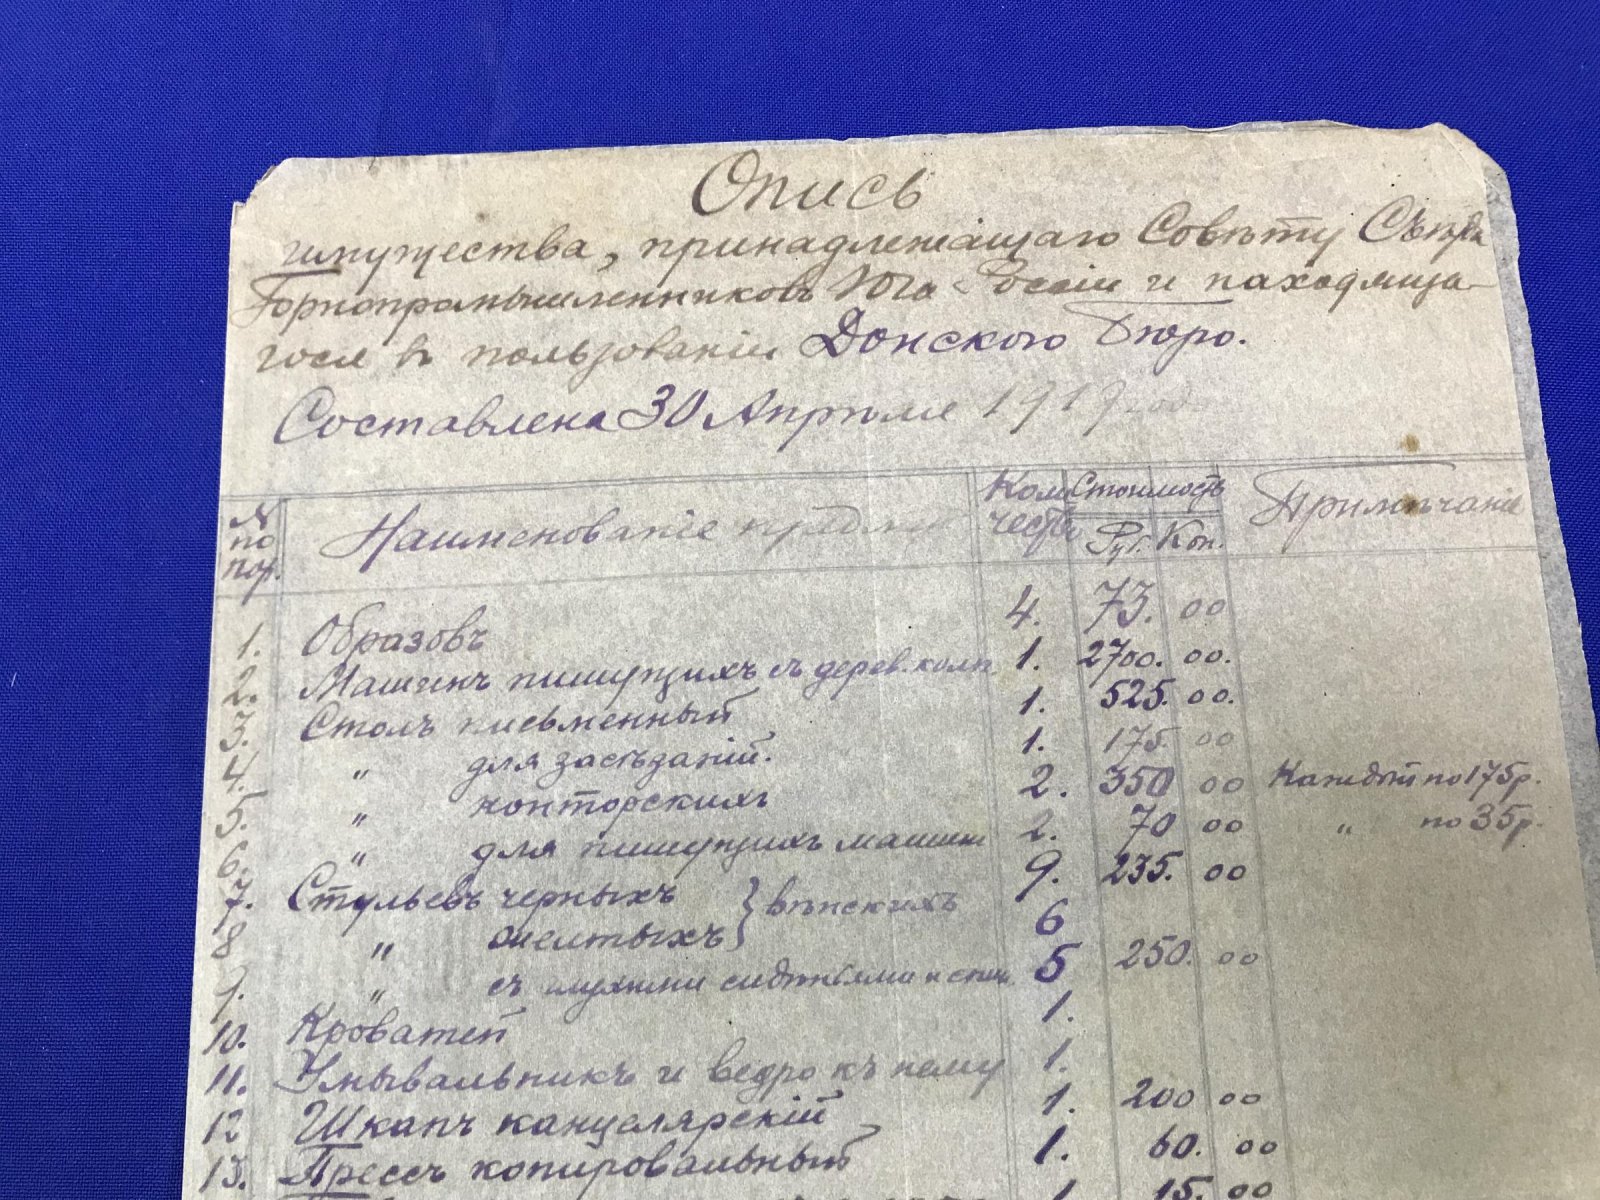 Опись
имущества, принадлежащаго Совѣту Съѣзда
Горнопромышленниковъ Юга Россіи и находяща-
гося въ пользованіи Донского Бюро.
Составлена 30 Апрѣля 1919 года
№ по пор. Наименованіе предмет Количество Стоимость Руб. Коп. Примѣчаніе
1. Образовъ 4. 73. 00
2. Машинъ пишущихъ съ дерев. колп. 1. 2700. 00.
3. Столъ письменный 1. 525. 00.
4. " для засѣданій. 1. 175 00
5. " конторскихъ 2. 350 00 Каждый по 175 р.
6. " для пишущихъ машин 2. 70 00 " по 35 р.
7. Стульевъ черныхъ } вѣнскихъ 9. 235. 00
8 " желтыхъ 6
9. " съ глухими сидѣньями и спин. 5 250. 00
10. Кроватей 1.
11. Умывальникъ и ведро къ нему 1.
12 Шкапъ канцелярскій 1. 200 00
13. Прессъ копировальный 1. 60. 00
1 15. 00